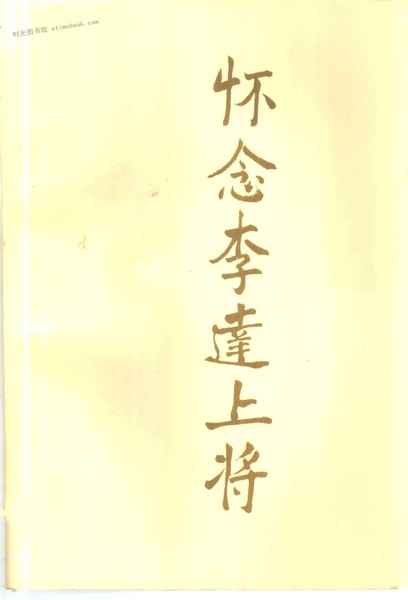 时光图书馆 etimebook.com
怀念李達上将